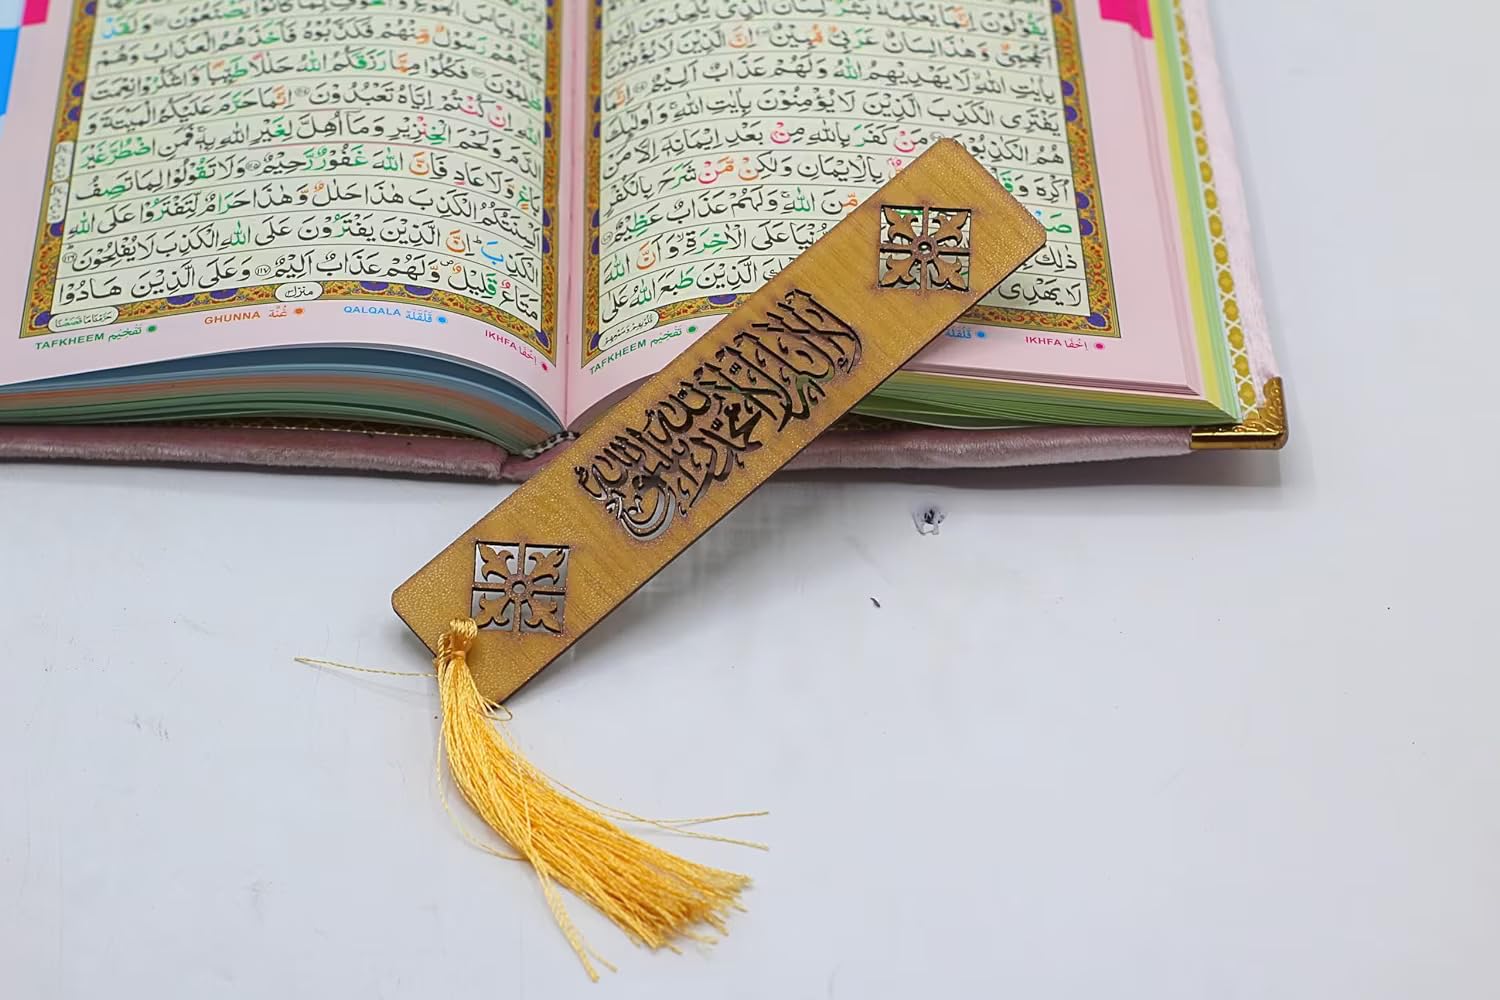 يَقُوْلُوْنَ اِنَّمَا يُعَلِّمُهٗ بَشَرٌ لِسَانُ الَّذِيْ يُلْحِدُوْنَ
اَعْجَمِيٌّ وَّهٰذَا لِسَانٌ عَرَبِيٌّ مُّبِيْنٌ ۝ اِنَّ الَّذِيْنَ لَا يُؤْمِنُوْنَ
بِاٰيٰتِ اللّٰهِ لَا يَهْدِيْهِمُ اللّٰهُ وَلَهُمْ عَذَابٌ اَلِيْمٌ ۝ اِنَّمَا
يَفْتَرِى الْكَذِبَ الَّذِيْنَ لَا يُؤْمِنُوْنَ بِاٰيٰتِ اللّٰهِ ۚ وَاُولٰٓئِكَ
هُمُ الْكٰذِبُوْنَ ۝ مَنْ كَفَرَ بِاللّٰهِ مِنْۢ بَعْدِ اِيْمَانِهٖٓ اِلَّا مَنْ
اُكْرِهَ بِالْاِيْمَانِ وَلٰكِنْ مَّنْ شَرَحَ بِالْكُفْرِ
مِّنَ اللّٰهِ ۚ وَلَهُمْ عَذَابٌ عَظِيْمٌ ۝
ذٰلِكَ عَلَى الْاٰخِرَةِ ۙ وَاَنَّ اللّٰهَ
لَا يَهْدِى الَّذِيْنَ طَبَعَ اللّٰهُ عَلٰى
TAFKHEEM تَفْخِيْم
قَلْقَلَة
IKHFA اِخْفَا
لِبَاسَ الْجُوْعِ وَالْخَوْفِ بِمَا كَانُوْا يَصْنَعُوْنَ ۝ وَلَقَدْ
جَآءَهُمْ رَسُوْلٌ مِّنْهُمْ فَكَذَّبُوْهُ فَاَخَذَهُمُ الْعَذَابُ وَهُمْ
ظٰلِمُوْنَ ۝ فَكُلُوْا مِمَّا رَزَقَكُمُ اللّٰهُ حَلٰلًا طَيِّبًا ۪ وَّاشْكُرُوْا نِعْمَتَ
اللّٰهِ اِنْ كُنْتُمْ اِيَّاهُ تَعْبُدُوْنَ ۝ اِنَّمَا حَرَّمَ عَلَيْكُمُ الْمَيْتَةَ وَ
الدَّمَ وَلَحْمَ الْخِنْزِيْرِ وَمَآ اُهِلَّ لِغَيْرِ اللّٰهِ بِهٖ ۚ فَمَنِ اضْطُرَّ غَيْرَ
بَاغٍ وَّلَا عَادٍ فَاِنَّ اللّٰهَ غَفُوْرٌ رَّحِيْمٌ ۝ وَلَا تَقُوْلُوْا لِمَا تَصِفُ
اَلْسِنَتُكُمُ الْكَذِبَ هٰذَا حَلٰلٌ وَّهٰذَا حَرَامٌ لِّتَفْتَرُوْا عَلَى اللّٰهِ
الْكَذِبَ ؕ اِنَّ الَّذِيْنَ يَفْتَرُوْنَ عَلَى اللّٰهِ الْكَذِبَ لَا يُفْلِحُوْنَ ۝۱۱۶
مَتَاعٌ قَلِيْلٌ ۪ وَّلَهُمْ عَذَابٌ اَلِيْمٌ ۝۱۱۷ وَعَلَى الَّذِيْنَ هَادُوْا
منزل
TAFKHEEM تَفْخِيْم
GHUNNA غُنَّة
QALQALA قَلْقَلَة
IKHFA اِخْفَا
لا إله إلا الله محمد رسول الله